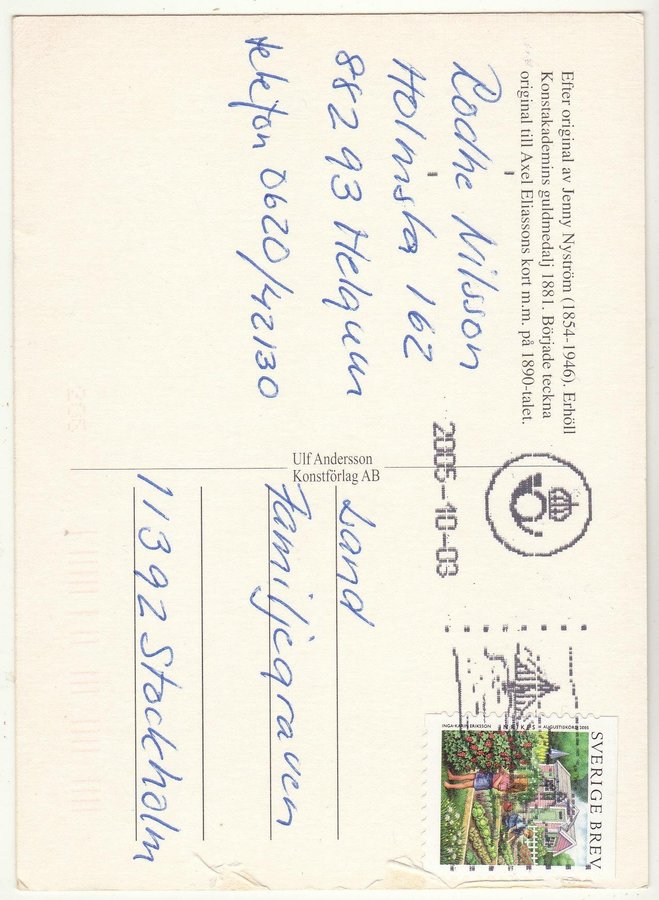 Efter original av Jenny Nyström (1854-1946). Erhöll
Konstakademins guldmedalj 1881. Började teckna
original till Axel Eliassons kort m.m. på 1890-talet.
Rodhe Nilsson
Holmsta 162
882 93 Helgum
telefon 0620/42130
Ulf Andersson
Konstförlag AB
2005-10-03
SVERIGE BREV
INGA-KARIN ERIKSSON
AUGUSTISKÖRD 2005
Land
Familjegraven
11392 Stockholm